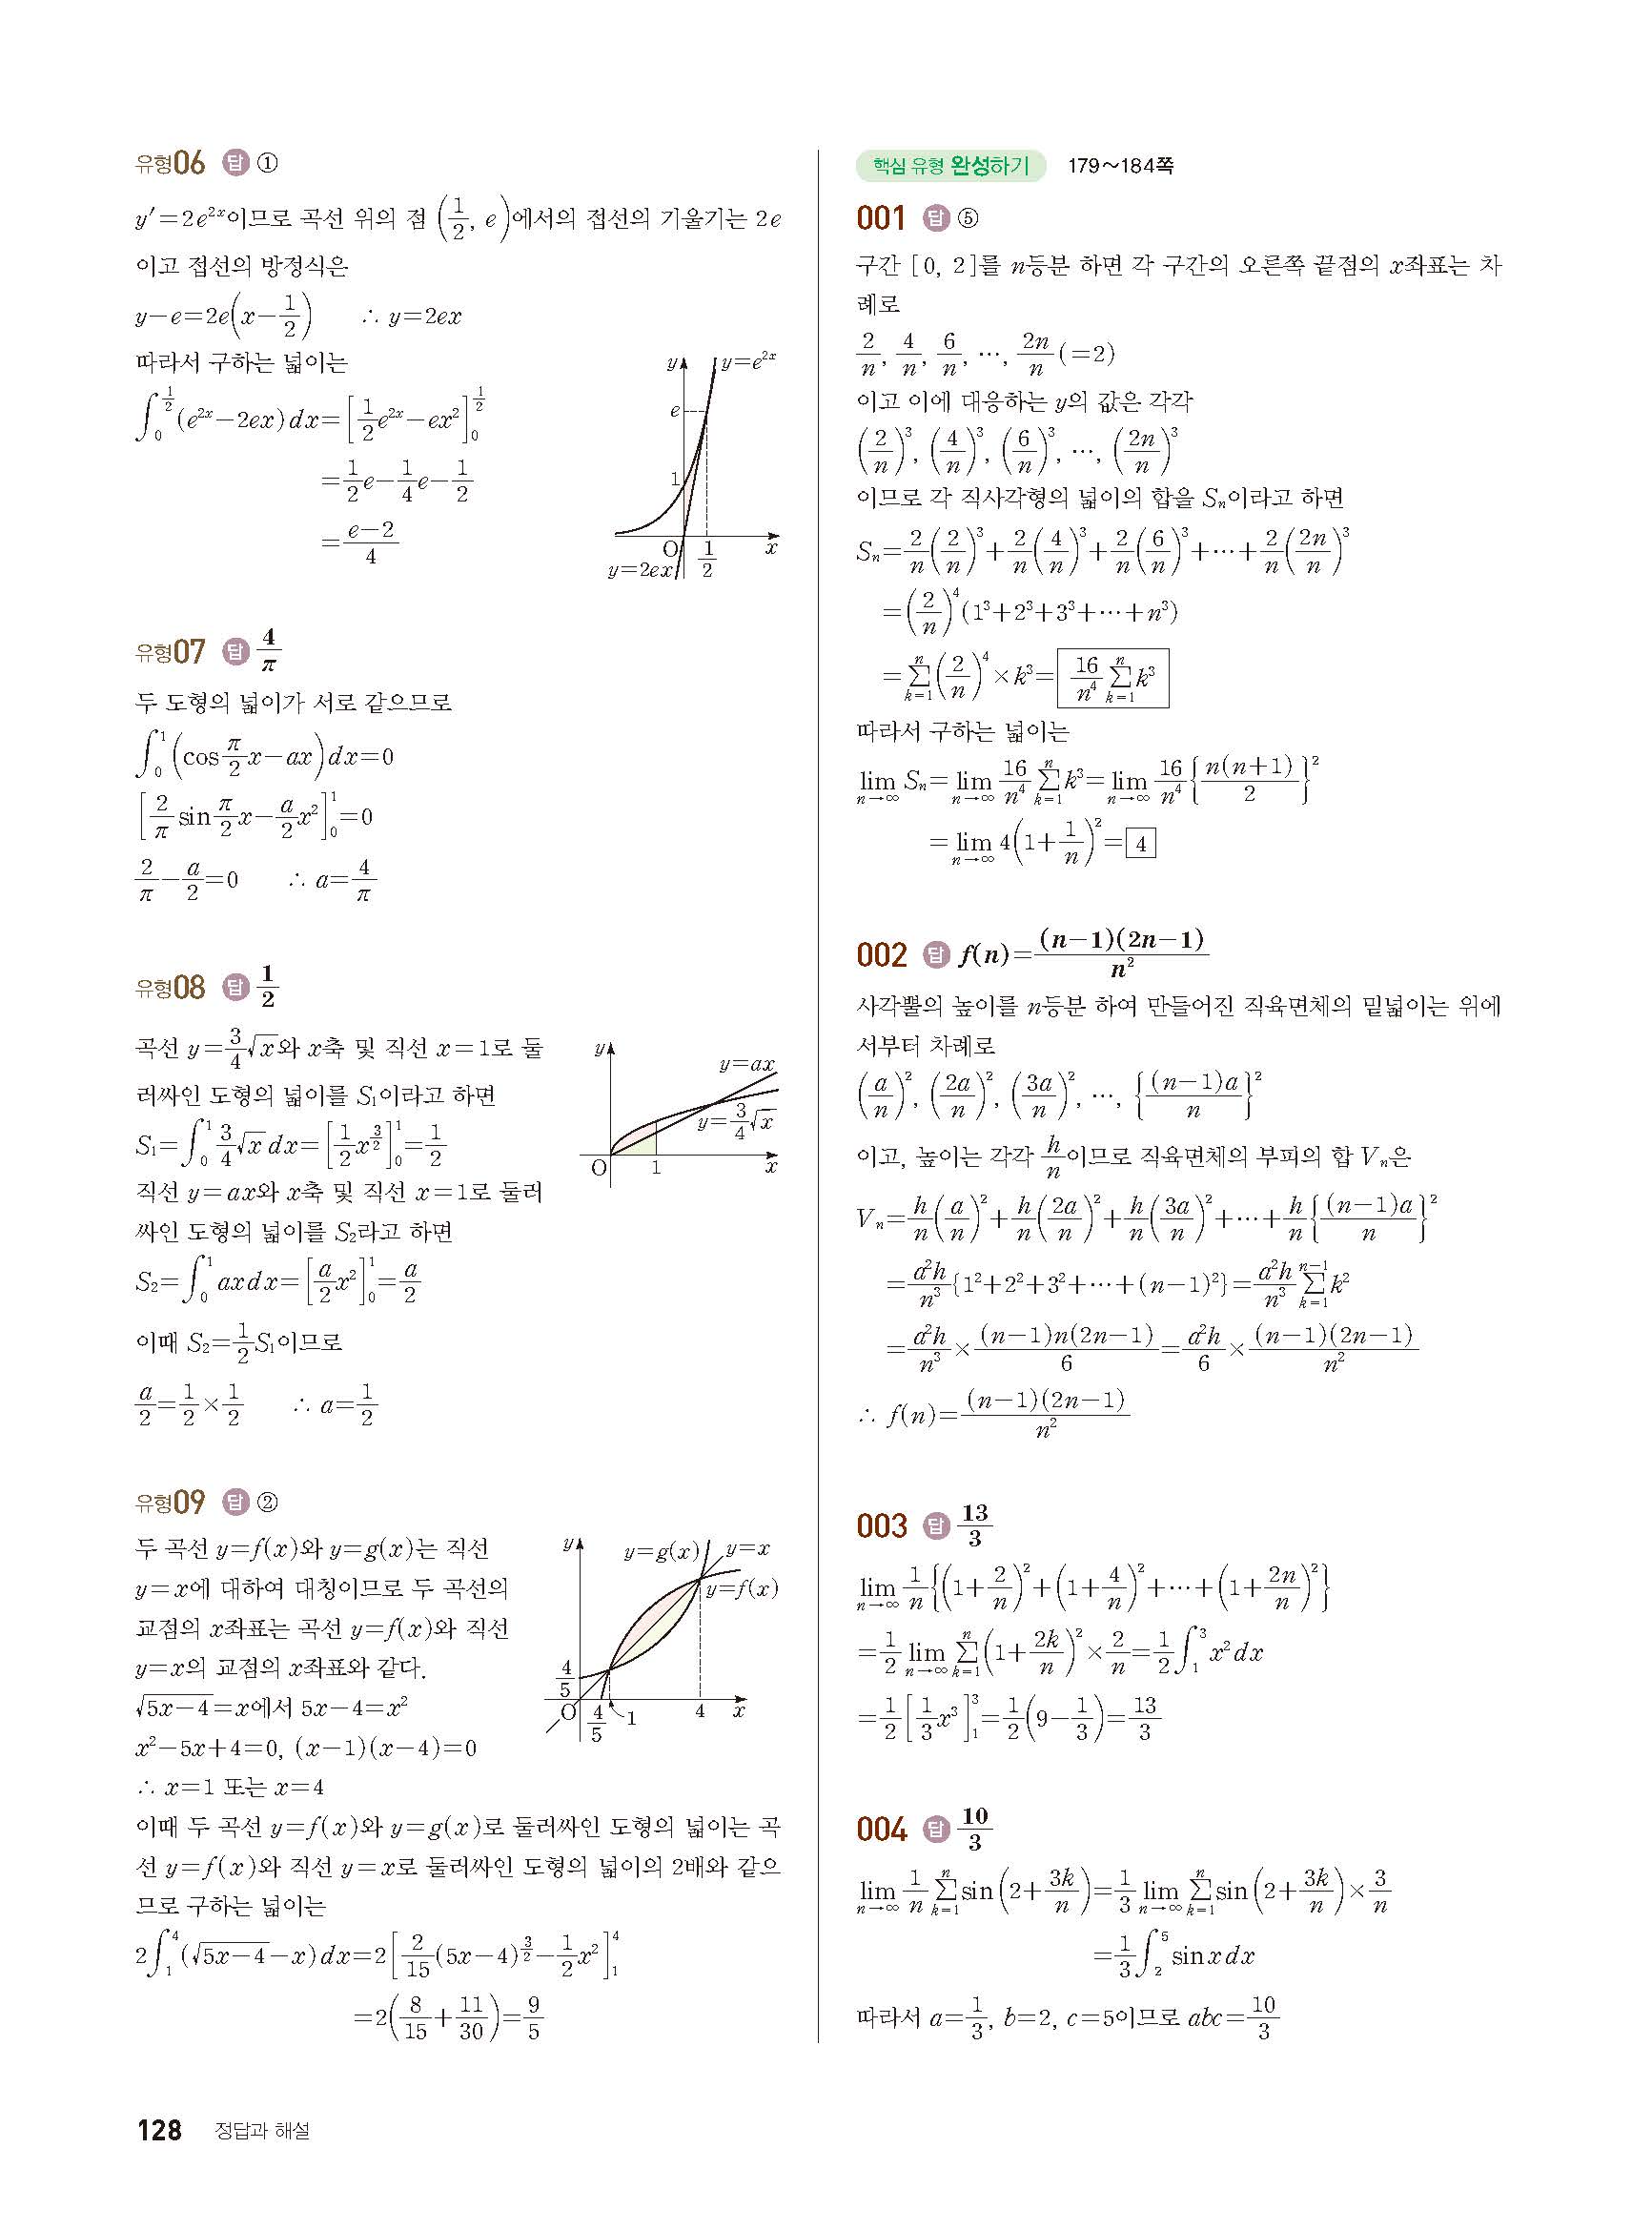 유형06 답 ①
y′=2e^{2x}이므로 곡선 위의 점 (1/2, e)에서의 접선의 기울기는 2e
이고 접선의 방정식은
y-e=2e(x-1/2) ∴ y=2ex
따라서 구하는 넓이는
∫_0^{1/2}(e^{2x}-2ex)dx=[1/2 e^{2x}-ex^2]_0^{1/2}
=1/2 e-1/4 e-1/2
=(e-2)/4
y
y=e^{2x}
e
1
O
1/2
x
y=2ex
유형07 답 4/π
두 도형의 넓이가 서로 같으므로
∫_0^1(cos π/2 x-ax)dx=0
[2/π sin π/2 x-a/2 x^2]_0^1=0
2/π-a/2=0 ∴ a=4/π
유형08 답 1/2
곡선 y=3/4 √x와 x축 및 직선 x=1로 둘
러싸인 도형의 넓이를 S₁이라고 하면
S₁=∫_0^1 3/4 √x dx=[1/2 x^{3/2}]_0^1=1/2
직선 y=ax와 x축 및 직선 x=1로 둘러
싸인 도형의 넓이를 S₂라고 하면
S₂=∫_0^1 axdx=[a/2 x^2]_0^1=a/2
이때 S₂=1/2 S₁이므로
a/2=1/2×1/2 ∴ a=1/2
y
y=ax
y=3/4 √x
O
1
x
유형09 답 ②
두 곡선 y=f(x)와 y=g(x)는 직선
y=x에 대하여 대칭이므로 두 곡선의
교점의 x좌표는 곡선 y=f(x)와 직선
y=x의 교점의 x좌표와 같다.
√(5x-4)=x에서 5x-4=x^2
x^2-5x+4=0, (x-1)(x-4)=0
∴ x=1 또는 x=4
이때 두 곡선 y=f(x)와 y=g(x)로 둘러싸인 도형의 넓이는 곡
선 y=f(x)와 직선 y=x로 둘러싸인 도형의 넓이의 2배와 같으
므로 구하는 넓이는
2∫_1^4(√(5x-4)-x)dx=2[2/15(5x-4)^{3/2}-1/2 x^2]_1^4
=2(8/15+11/30)=9/5
y
y=g(x)
y=x
y=f(x)
4/5
O
4/5
1
4
x
핵심 유형 완성하기 179~184쪽
001 답 ⑤
구간 [0, 2]를 n등분 하면 각 구간의 오른쪽 끝점의 x좌표는 차
례로
2/n, 4/n, 6/n, …, 2n/n(=2)
이고 이에 대응하는 y의 값은 각각
(2/n)^3, (4/n)^3, (6/n)^3, …, (2n/n)^3
이므로 각 직사각형의 넓이의 합을 Sₙ이라고 하면
Sₙ=2/n(2/n)^3+2/n(4/n)^3+2/n(6/n)^3+…+2/n(2n/n)^3
=(2/n)^4(1^3+2^3+3^3+…+n^3)
=∑_{k=1}^{n}(2/n)^4×k^3=16/n^4 ∑_{k=1}^{n}k^3
따라서 구하는 넓이는
lim_{n→∞} Sₙ=lim_{n→∞} 16/n^4 ∑_{k=1}^{n}k^3=lim_{n→∞} 16/n^4{n(n+1)/2}^2
=lim_{n→∞} 4(1+1/n)^2=4
002 답 f(n)=(n-1)(2n-1)/n^2
사각뿔의 높이를 n등분 하여 만들어진 직육면체의 밑넓이는 위에
서부터 차례로
(a/n)^2, (2a/n)^2, (3a/n)^2, …, {(n-1)a/n}^2
이고, 높이는 각각 h/n이므로 직육면체의 부피의 합 Vₙ은
Vₙ=h/n(a/n)^2+h/n(2a/n)^2+h/n(3a/n)^2+…+h/n{(n-1)a/n}^2
=a^2h/n^3{1^2+2^2+3^2+…+(n-1)^2}=a^2h/n^3 ∑_{k=1}^{n-1}k^2
=a^2h/n^3×(n-1)n(2n-1)/6=a^2h/6×(n-1)(2n-1)/n^2
∴ f(n)=(n-1)(2n-1)/n^2
003 답 13/3
lim_{n→∞} 1/n{(1+2/n)^2+(1+4/n)^2+…+(1+2n/n)^2}
=1/2 lim_{n→∞} ∑_{k=1}^{n}(1+2k/n)^2×2/n=1/2∫_1^3 x^2dx
=1/2[1/3 x^3]_1^3=1/2(9-1/3)=13/3
004 답 10/3
lim_{n→∞} 1/n ∑_{k=1}^{n}sin(2+3k/n)=1/3 lim_{n→∞} ∑_{k=1}^{n}sin(2+3k/n)×3/n
=1/3∫_2^5 sinxdx
따라서 a=1/3, b=2, c=5이므로 abc=10/3
128 정답과 해설